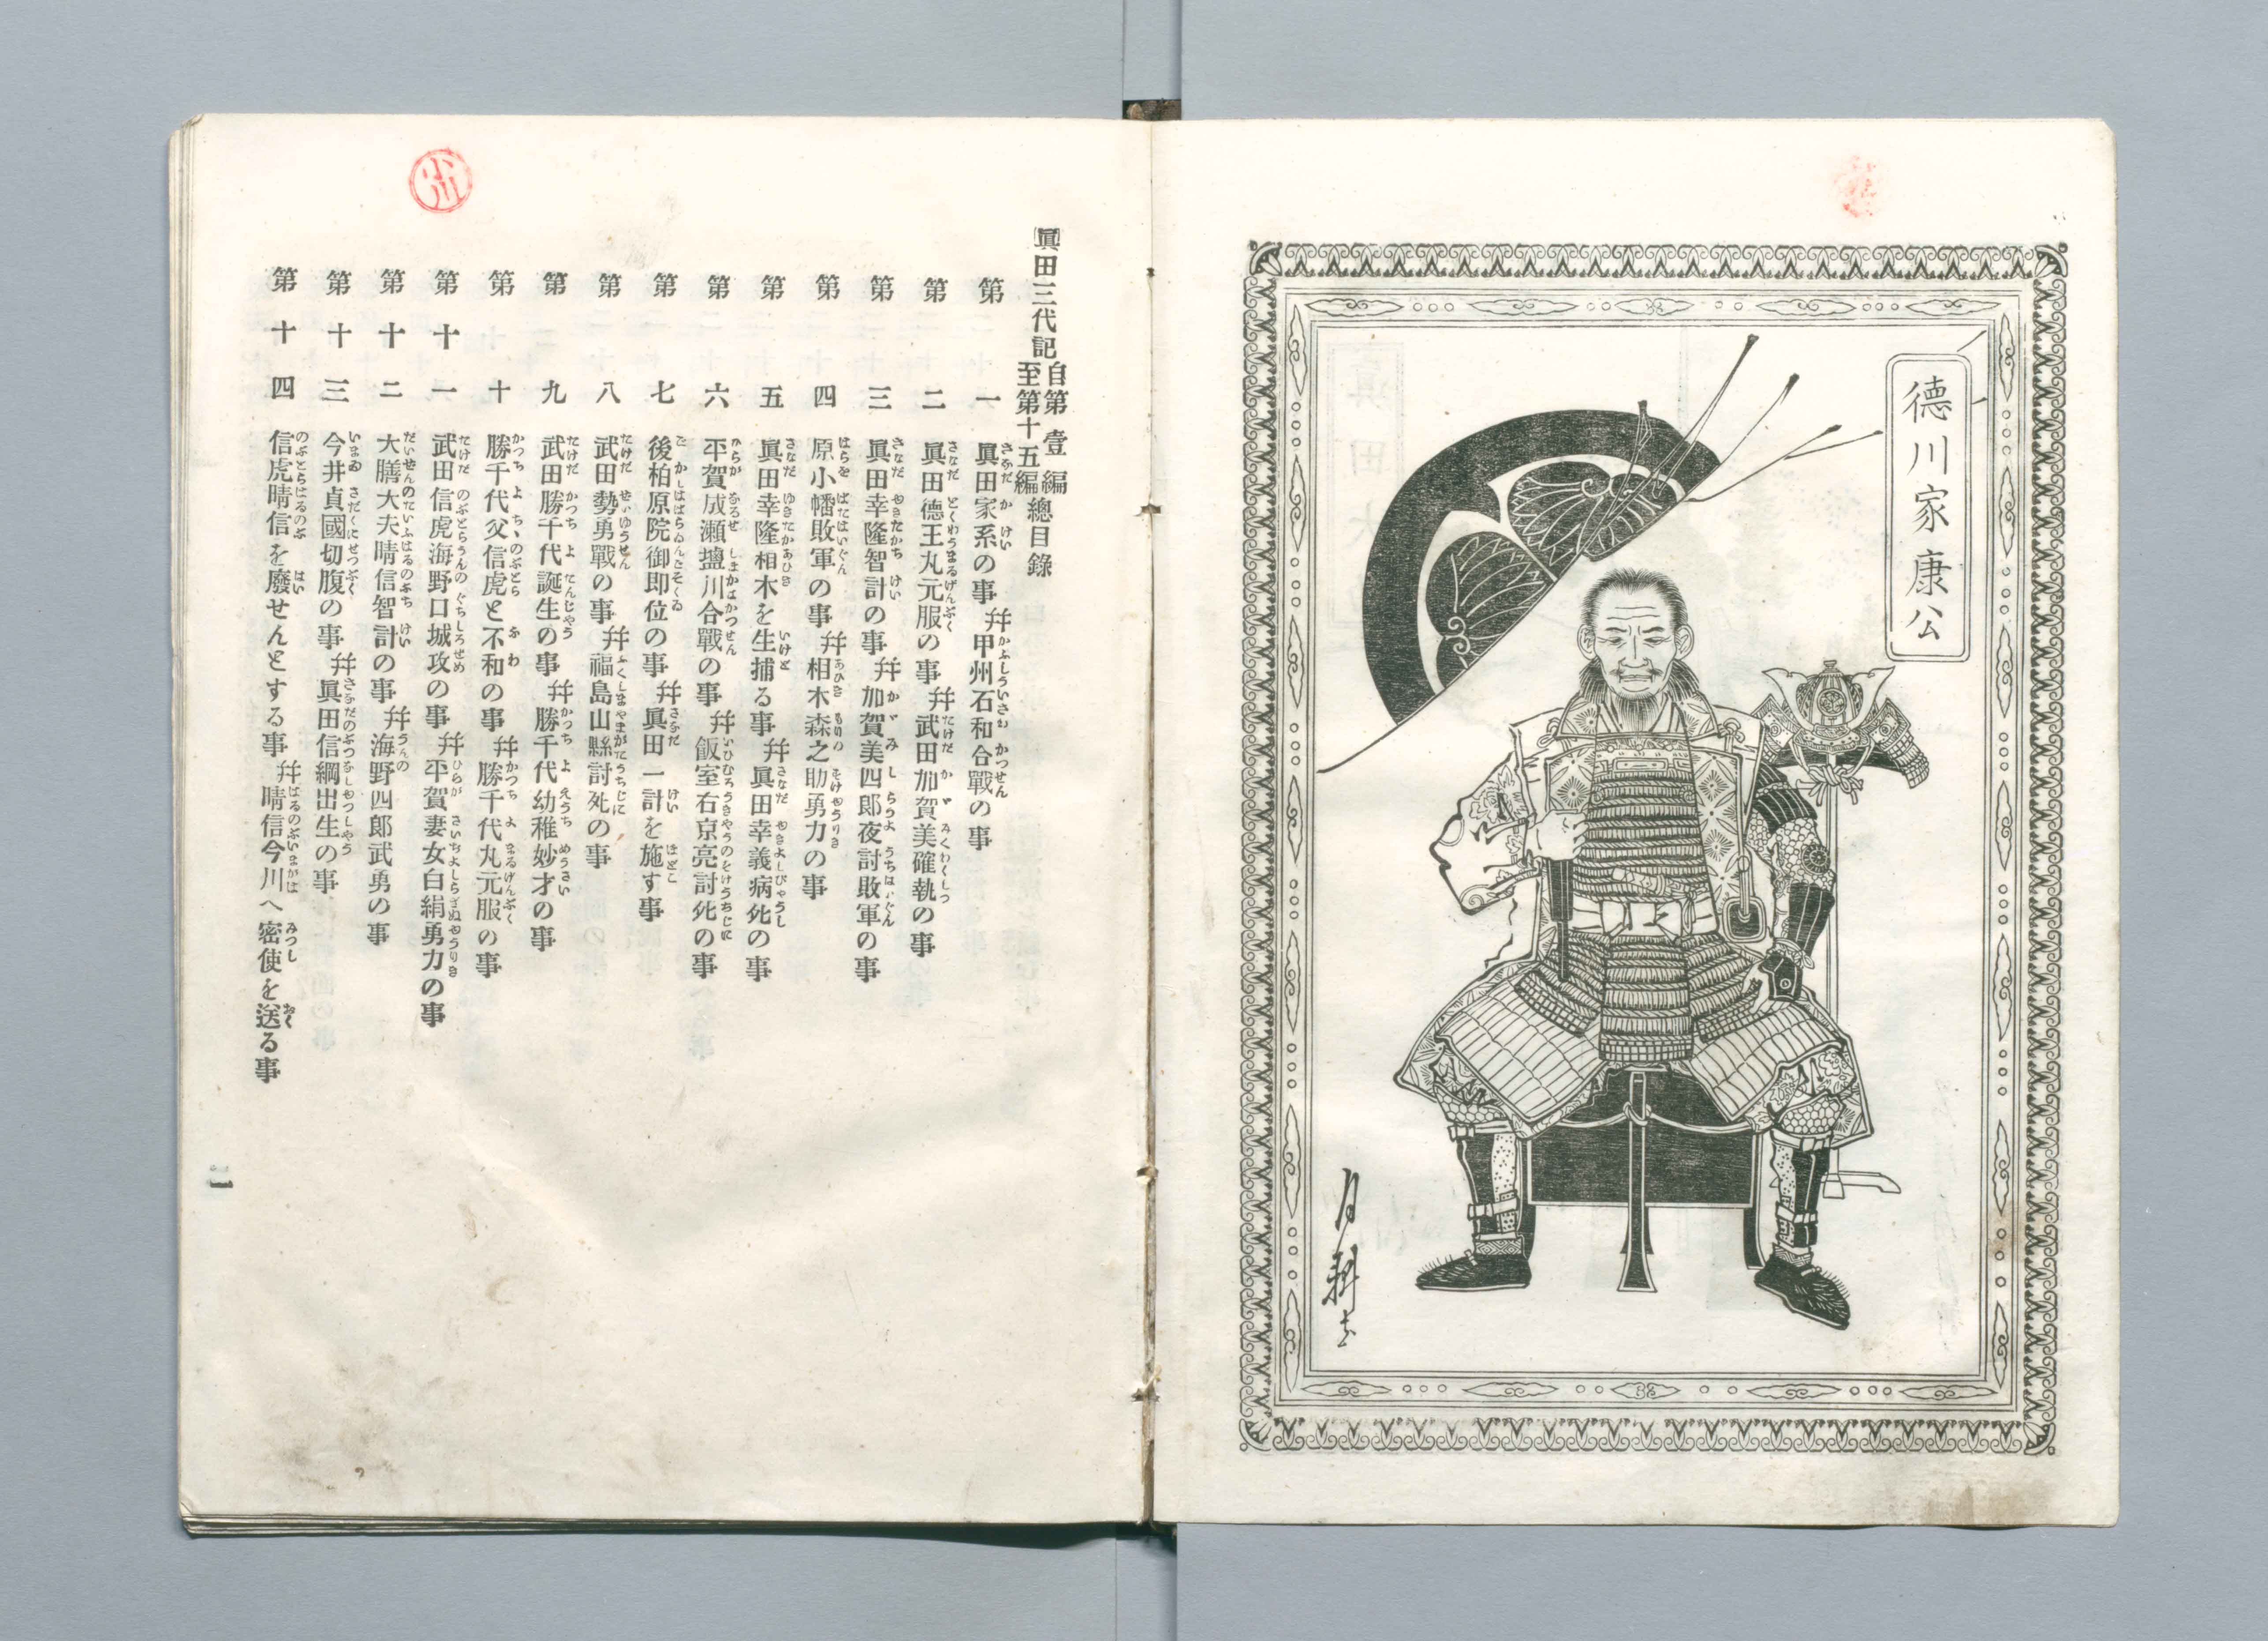 德川家康公
月耕
眞田三代記自第壹編至第十五編總目錄
第一 眞田家系の事幷甲州石和合戰の事
第二 眞田德王丸元服の事幷武田加賀美確執の事
第三 眞田幸隆智計の事幷加賀美四郎夜討敗軍の事
第四 原小幡敗軍の事幷相木森之助勇力の事
第五 眞田幸隆相木を生捕る事幷眞田幸義病死の事
第六 平賀成瀬鹽川合戰の事幷飯室右京亮討死の事
第七 後柏原院御即位の事幷眞田一計を施す事
第八 武田勢勇戰の事幷福島山縣討死の事
第九 武田勝千代誕生の事幷勝千代幼稚妙才の事
第十 勝千代父信虎と不和の事幷勝千代丸元服の事
第十一 武田信虎海野口城攻の事幷平賀妻女白絹勇力の事
第十二 大膳大夫晴信智計の事幷海野四郎武勇の事
第十三 今井貞國切腹の事幷眞田信綱出生の事
第十四 信虎晴信を廢せんとする事幷晴信今川へ密使を送る事